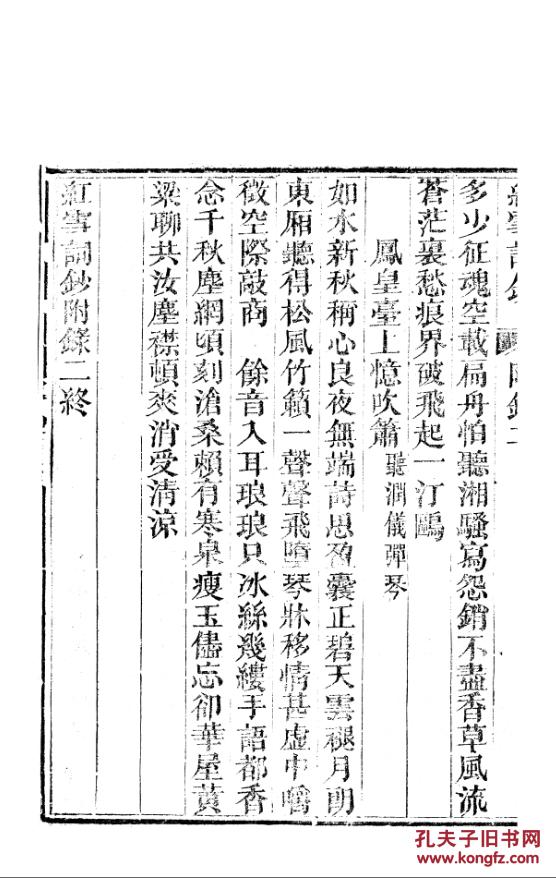 紅雪詞鈔 附錄二
多少征魂空載扁舟怕聽湘騷寫怨銷不盡香草風流
蒼茫裏愁痕界破飛起一汀鷗
鳳皇臺上憶吹簫 聽潤儀彈琴
如水新秋稱心良夜無端詩思盈囊正碧天雲褪月朗
東厢聽得松風竹籟一聲聲飛墮琴牀移情甚虛中嚼
徵空際敲商 餘音入耳琅琅只冰絲幾縷手語都香
念千秋塵網頃刻滄桑賴有寒泉瘦玉儘忘卻華屋黃
粱聊共汝塵襟頓爽消受清涼
紅雪詞鈔附錄二終
孔夫子旧书网
kongfz.com